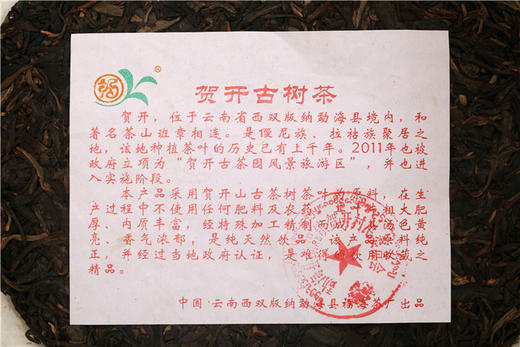 贺开古树茶
贺开，位于云南省西双版纳勐海县境内，和
著名茶山班章相连。是僾尼族、拉祜族聚居之
地，该地种植茶叶的历史已有上千年。2011年也被
政府立项为“贺开古茶园风景旅游区”，并也进
入实施阶段。
本产品采用贺开山古茶树茶叶为原料，在生
产过程中不使用任何肥料及农药，叶片粗大肥
厚、内质丰富，经特殊加工精制而成，其汤色黄
亮、香气浓郁，是纯天然饮品。该产品原料纯
正，并经过当地政府认证，是难得的饮用收藏之
精品。
中国·云南西双版纳勐海县福海茶厂出品